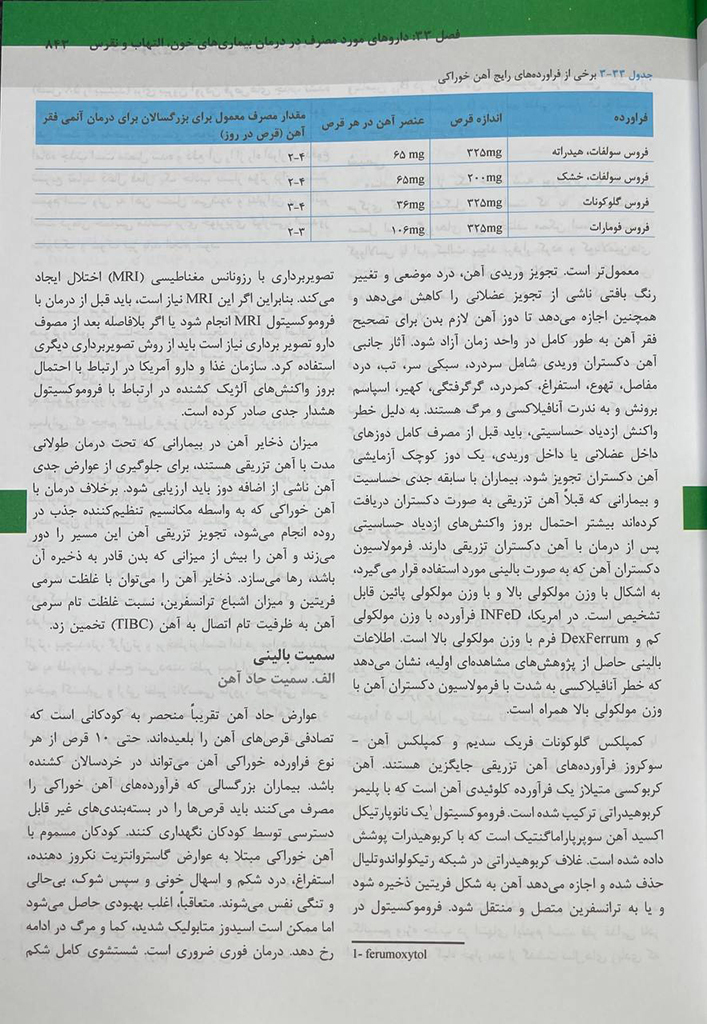 فصل ۳۳: داروهای مورد مصرف در درمان بیماری‌های خون، التهاب و نقرس ۸۴۳
جدول ۳۳-۳ برخی از فراورده‌های رایج آهن خوراکی
فراورده | اندازه قرص | عنصر آهن در هر قرص | مقدار مصرف معمول برای بزرگسالان برای درمان آنمی فقر آهن (قرص در روز)
فروس سولفات، هیدراته | ۳۲۵mg | ۶۵ mg | ۲-۴
فروس سولفات، خشک | ۲۰۰mg | ۶۵mg | ۲-۴
فروس گلوکونات | ۳۲۵mg | ۳۶mg | ۳-۴
فروس فومارات | ۳۲۵mg | ۱۰۶mg | ۲-۳
معمول‌تر است. تجویز وریدی آهن، درد موضعی و تغییر
رنگ بافتی ناشی از تجویز عضلانی را کاهش می‌دهد و
همچنین اجازه می‌دهد تا دوز آهن لازم بدن برای تصحیح
فقر آهن به طور کامل در واحد زمان آزاد شود. آثار جانبی
آهن دکستران وریدی شامل سردرد، سبکی سر، تب، درد
مفاصل، تهوع، استفراغ، کمردرد، گرگرفتگی، کهیر، اسپاسم
برونش و به ندرت آنافیلاکسی و مرگ هستند. به دلیل خطر
واکنش ازدیاد حساسیتی، باید قبل از مصرف کامل دوزهای
داخل عضلانی یا داخل وریدی، یک دوز کوچک آزمایشی
آهن دکستران تجویز شود. بیماران با سابقه جدی حساسیت
و بیمارانی که قبلاً آهن تزریقی به صورت دکستران دریافت
کرده‌اند بیشتر احتمال بروز واکنش‌های ازدیاد حساسیتی
پس از درمان با آهن دکستران تزریقی دارند. فرمولاسیون
دکستران آهن که به صورت بالینی مورد استفاده قرار می‌گیرد،
به اشکال با وزن مولکولی بالا و با وزن مولکولی پائین قابل
تشخیص است. در امریکا، INFeD فرآورده با وزن مولکولی
کم و DexFerrum فرم با وزن مولکولی بالا است. اطلاعات
بالینی حاصل از پژوهش‌های مشاهده‌ای اولیه، نشان می‌دهد
که خطر آنافیلاکسی به شدت با فرمولاسیون دکستران آهن با
وزن مولکولی بالا همراه است.
کمپلکس گلوکونات فریک سدیم و کمپلکس آهن –
سوکروز فرآورده‌های آهن تزریقی جایگزین هستند. آهن
کربوکسی متیلاز یک فرآورده کلوئیدی آهن است که با پلیمر
کربوهیدراتی ترکیب شده است. فروموکسیتول¹ یک نانوپارتیکل
اکسید آهن سوپرپاراماگنتیک است که با کربوهیدرات پوشش
داده شده است. غلاف کربوهیدراتی در شبکه رتیکولواندوتلیال
حذف شده و اجازه می‌دهد آهن به شکل فریتین ذخیره شود
و یا به ترانسفرین متصل و منتقل شود. فروموکسیتول در
1- ferumoxytol
تصویربرداری با رزونانس مغناطیسی (MRI) اختلال ایجاد
می‌کند. بنابراین اگر این MRI نیاز است، باید قبل از درمان با
فروموکسیتول MRI انجام شود یا اگر بلافاصله بعد از مصوف
دارو تصویر برداری نیاز است باید از روش تصویربرداری دیگری
استفاده کرد. سازمان غذا و دارو آمریکا در ارتباط با احتمال
بروز واکنش‌های آلرژیک کشنده در ارتباط با فروموکسیتول
هشدار جدی صادر کرده است.
میزان ذخایر آهن در بیمارانی که تحت درمان طولانی
مدت با آهن تزریقی هستند، برای جلوگیری از عوارض جدی
آهن ناشی از اضافه دوز باید ارزیابی شود. برخلاف درمان با
آهن خوراکی که به واسطه مکانسیم تنظیم‌کننده جذب در
روده انجام می‌شود، تجویز تزریقی آهن این مسیر را دور
می‌زند و آهن را بیش از میزانی که بدن قادر به ذخیره آن
باشد، رها می‌سازد. ذخایر آهن را می‌توان با غلظت سرمی
فریتین و میزان اشباع ترانسفرین، نسبت غلظت تام سرمی
آهن به ظرفیت تام اتصال به آهن (TIBC) تخمین زد.
سمیت بالینی
الف. سمیت حاد آهن
عوارض حاد آهن تقریباً منحصر به کودکانی است که
تصادفی قرص‌های آهن را بلعیده‌اند. حتی ۱۰ قرص از هر
نوع فراورده خوراکی آهن می‌تواند در خردسالان کشنده
باشد. بیماران بزرگسالی که فرآورده‌های آهن خوراکی را
مصرف می‌کنند باید قرص‌ها را در بسته‌بندی‌های غیر قابل
دسترسی توسط کودکان نگهداری کنند. کودکان مسموم با
آهن خوراکی مبتلا به عوارض گاستروانتریت نکروز دهنده،
استفراغ، درد شکم و اسهال خونی و سپس شوک، بی‌حالی
و تنگی نفس می‌شوند. متعاقباً، اغلب بهبودی حاصل می‌شود
اما ممکن است اسیدوز متابولیک شدید، کما و مرگ در ادامه
رخ دهد. درمان فوری ضروری است. شستشوی کامل شکم